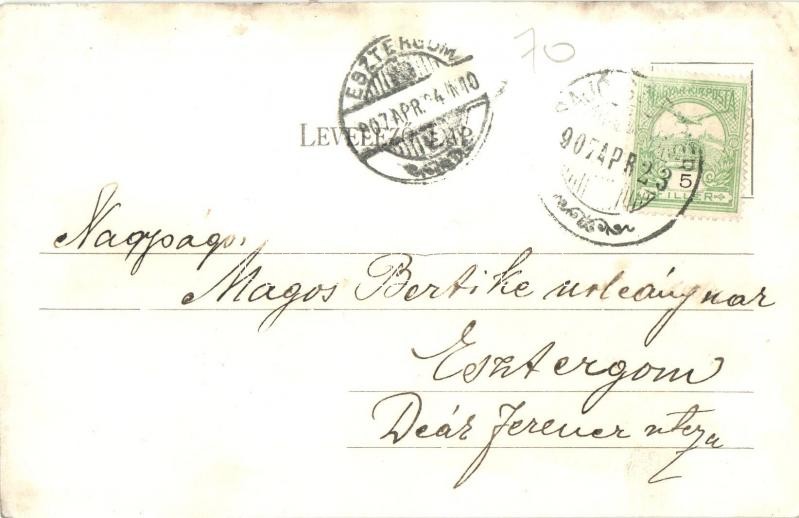 70
ESZTERGOM
907 APR. 24
907 APR 23
MAGYAR KIR. POSTA
5
FILLÉR
LEVELEZŐ-LAP
Nagyságos
Magos Bertike urleánynak
Esztergom
Deák Ferencz utcza